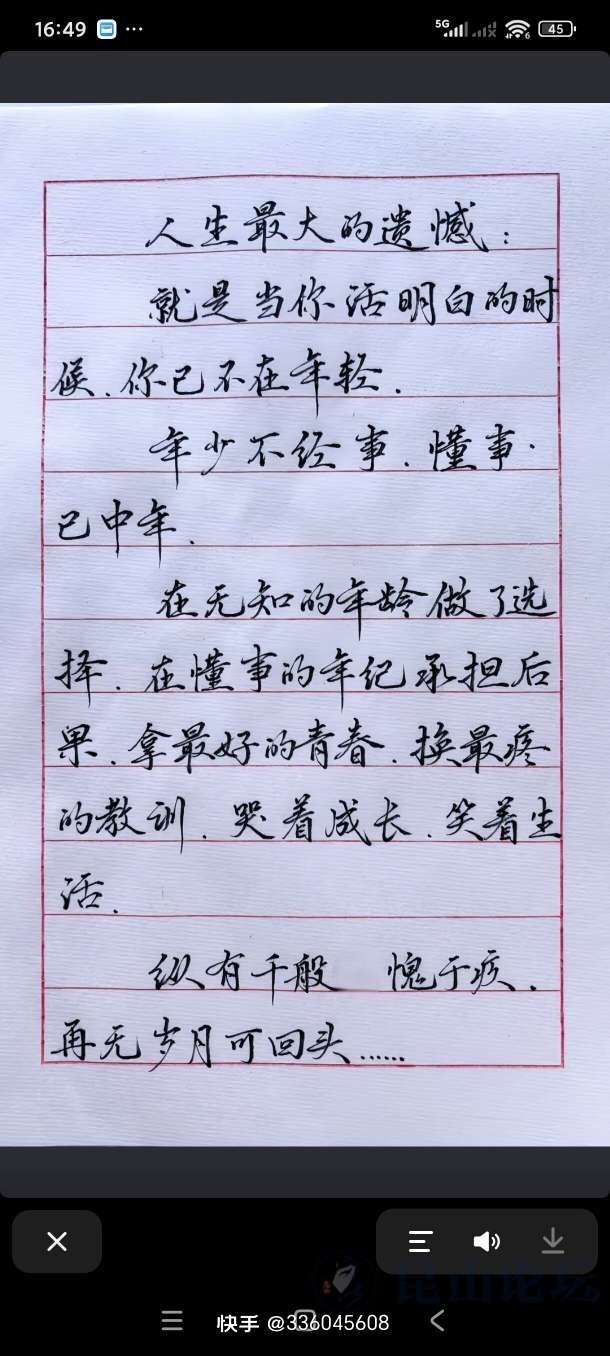 16:49
5G
45
人生最大的遗憾:
就是当你活明白的时
候.你已不在年轻.
年少不经事.懂事.
已中年.
在无知的年龄做了选
择.在懂事的年纪承担后
果.拿最好的青春.换最疼
的教训.哭着成长.笑着生
活.
纵有千般 愧于疚.
再无岁月可回头......
昆山论坛
快手 @336045608